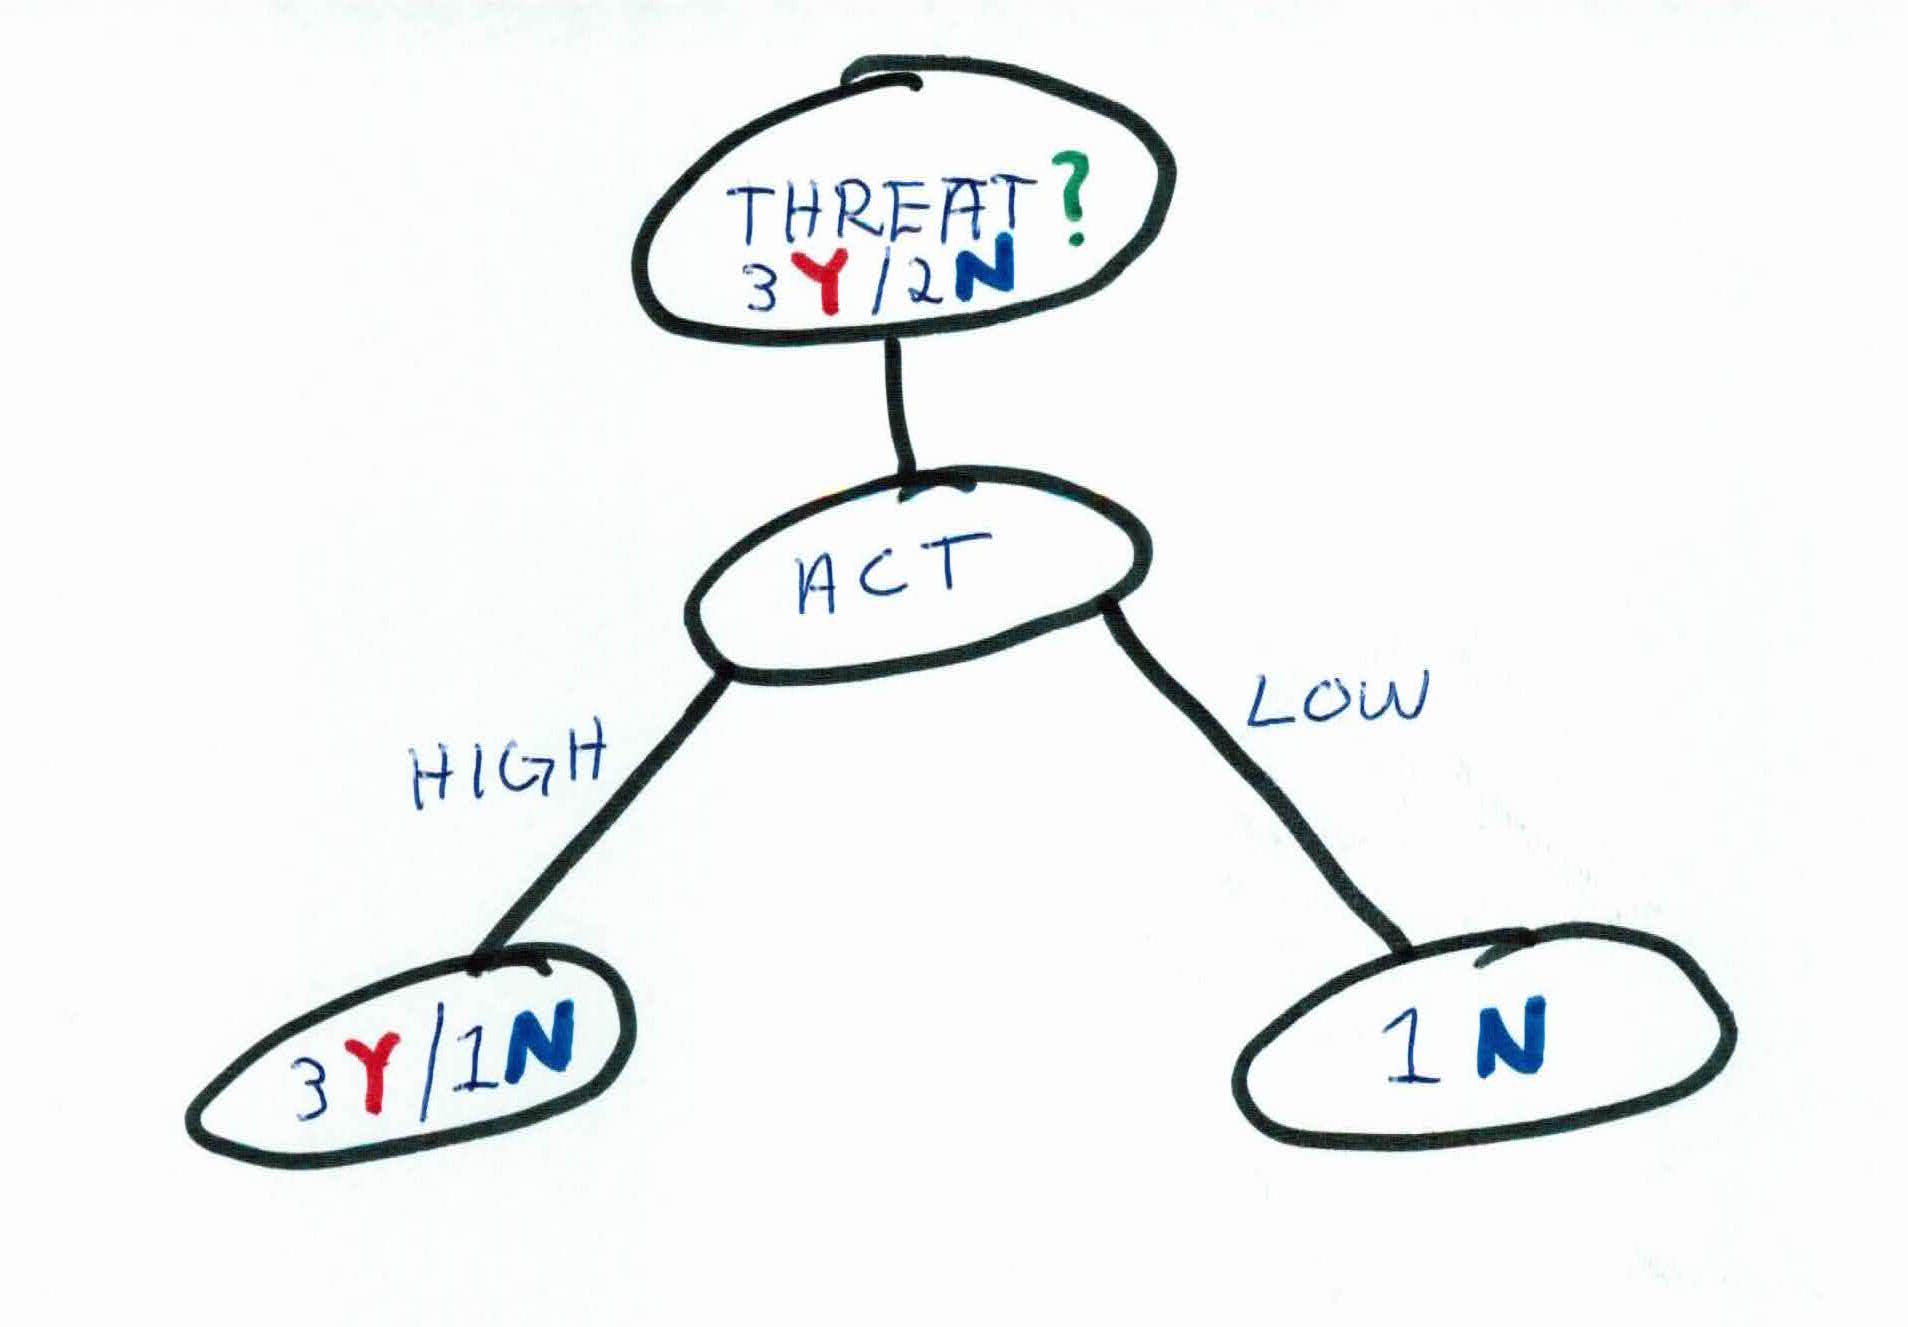 THREAT?
3Y/2N
ACT
HIGH
LOW
3Y/1N
1N